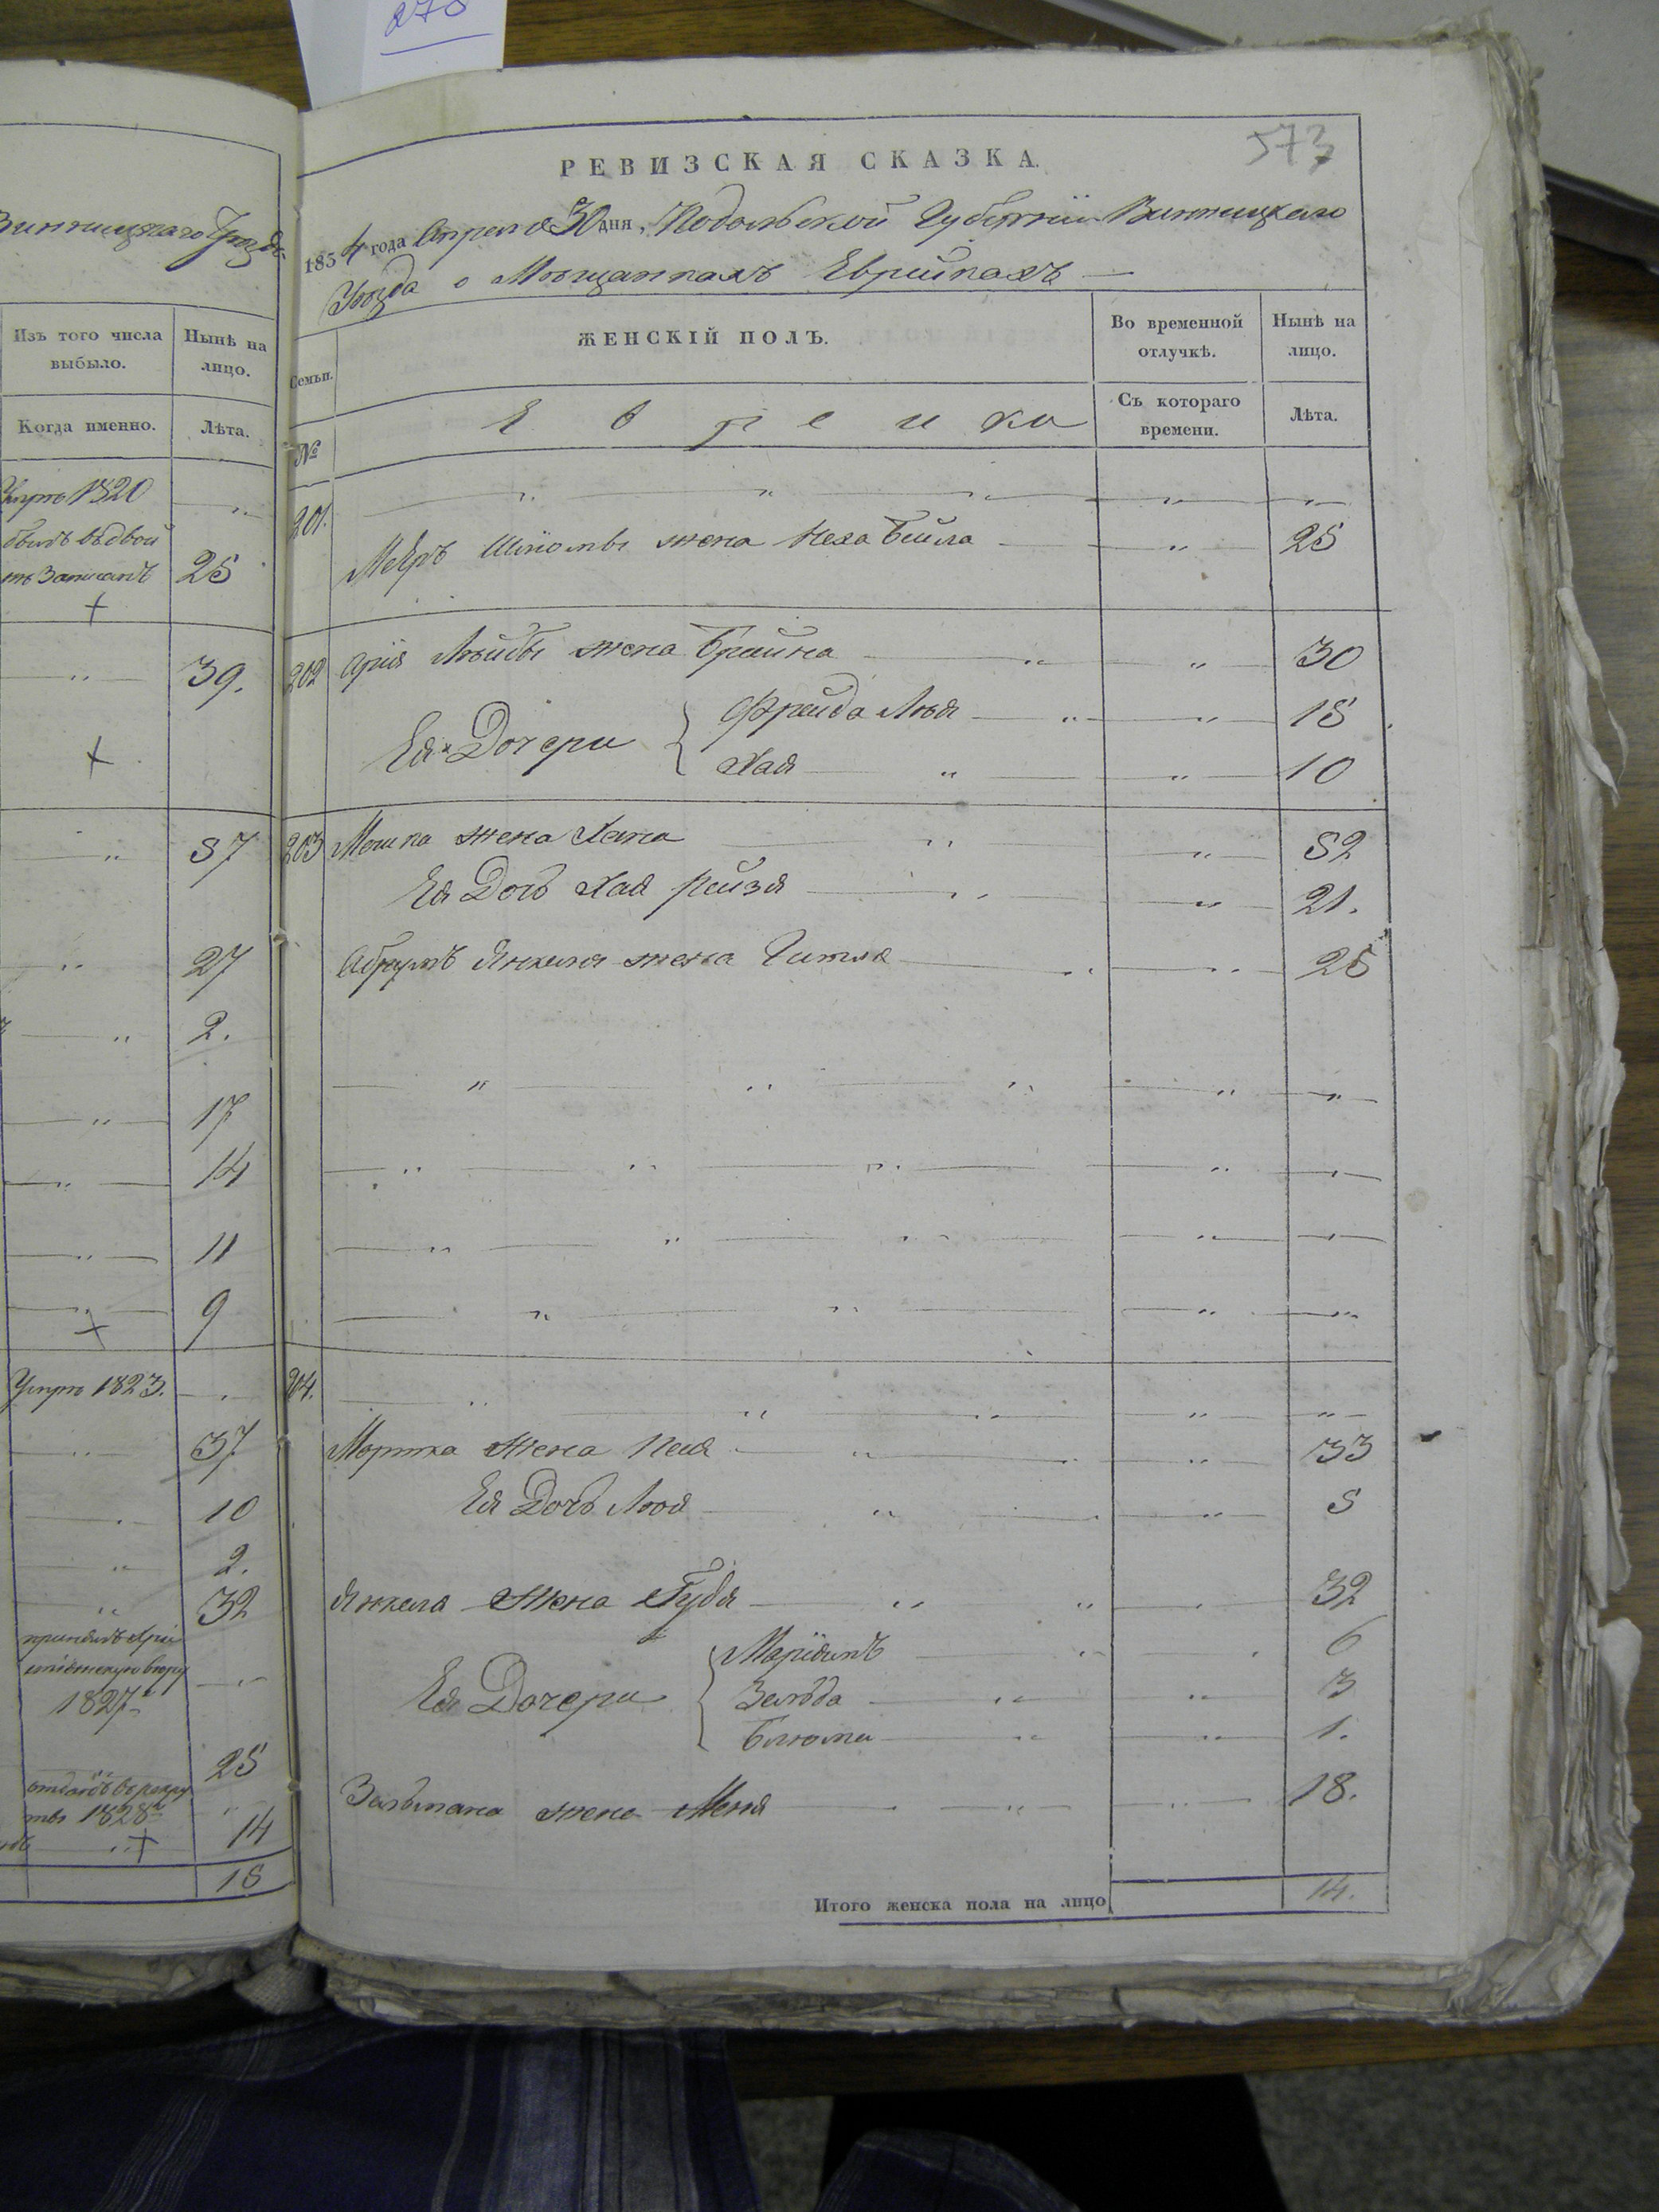 278
Винницкаго Уѣзда
Изъ того числа выбыло.
Нынѣ на лицо.
Когда именно.
Лѣта.
Умре 1820
25
39.
57
27
2.
17
14
11
9
Умре 1823.
37
10
2.
32
1827
25
1828
14
15
573
РЕВИЗСКАЯ СКАЗКА.
1834 года Апреля 30 дня, Подольской Губернiи Винницкаго
Уѣзда о Мѣщанкахъ Еврейкахъ
Семьи.
ЖЕНСКIЙ ПОЛЪ.
Во временной отлучкѣ.
Нынѣ на лицо.
№
Еврейки
Съ котораго времени.
Лѣта.
201.
жена Неха Бейла 25
202 Арiя Лейбы жена Брайна 30
Ея Дочери { Фрейда Лея 15
Хая 10
203 Мошка жена Хана 52
Ея Дочь Хая Рейзя 21.
Абрумъ Янкеля жена Гитля 25
204.
Мортка жена Песя 33
Ея Дочь Лея 5
Янкеля жена 32
Ея Дочери { Марiямъ 6
Зельда 3
Блюма 1.
Зальмана жена Меня 18.
Итого женска пола на лицо 14.